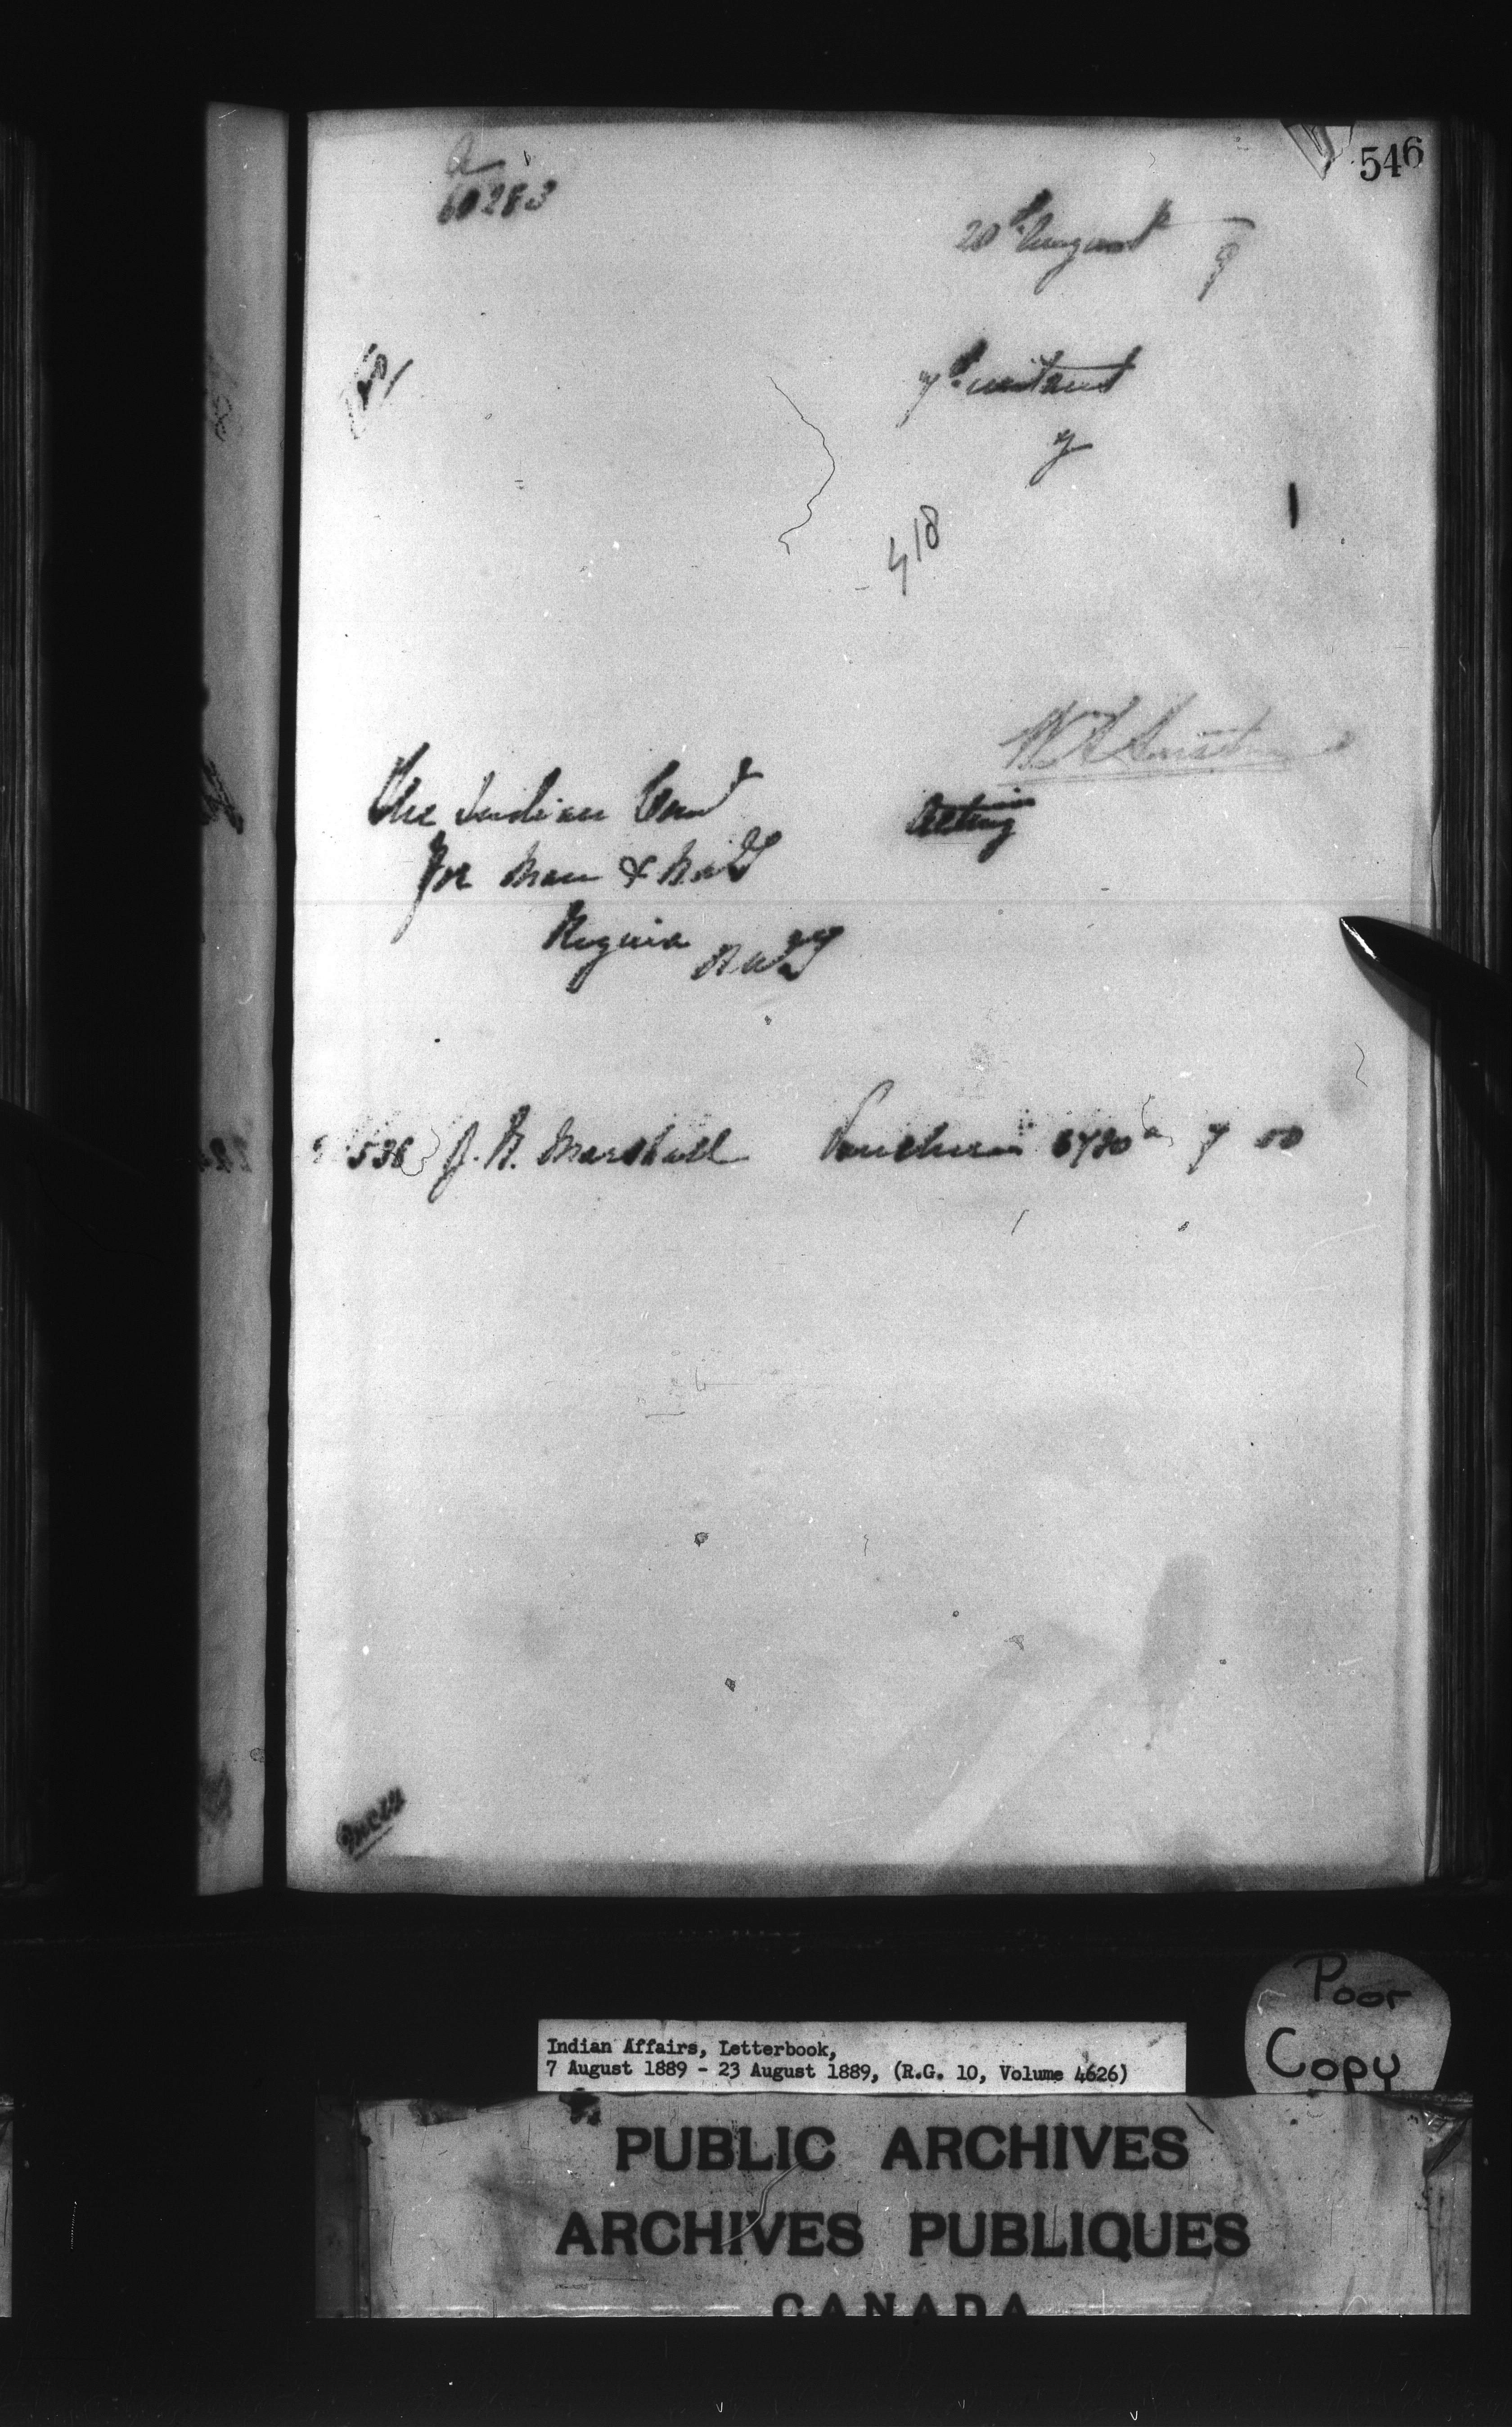 546
a
60283
20th August 9
7th instant
y
418
The Indian Comr
Acting
For Man & N.W.T
Regina N.W.T
538 J. R. Marshall Vouchers 7 50
Poor
Copy
Indian Affairs, Letterbook,
7 August 1889 - 23 August 1889, (R.G. 10, Volume 4626)
PUBLIC ARCHIVES
ARCHIVES PUBLIQUES
CANADA